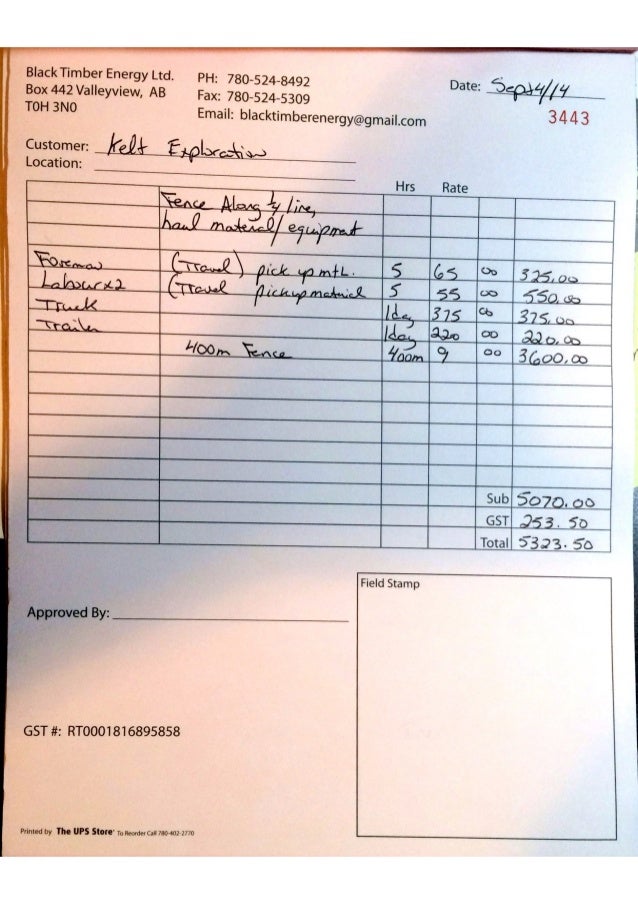 Black Timber Energy Ltd.
Box 442 Valleyview, AB
T0H 3N0
PH: 780-524-8492
Fax: 780-524-5309
Email: blacktimberenergy@gmail.com
Date: Sept 4/14
3443
Customer: Kelt Exploration
Location:
Hrs Rate
Fence Along 1/4 line,
haul material/equipment
Foreman (Travel) pick up mtl. 5 65 00 325.00
Labour x2 (Travel pickup material 5 55 00 550.00
Truck 1day 375 00 375.00
Trailer 1day 220 00 220.00
400m Fence 400m 9 00 3600.00
Sub 5070.00
GST 253.50
Total 5323.50
Field Stamp
Approved By:
GST #: RT0001816895858
Printed by The UPS Store To Reorder Call 780-402-2770